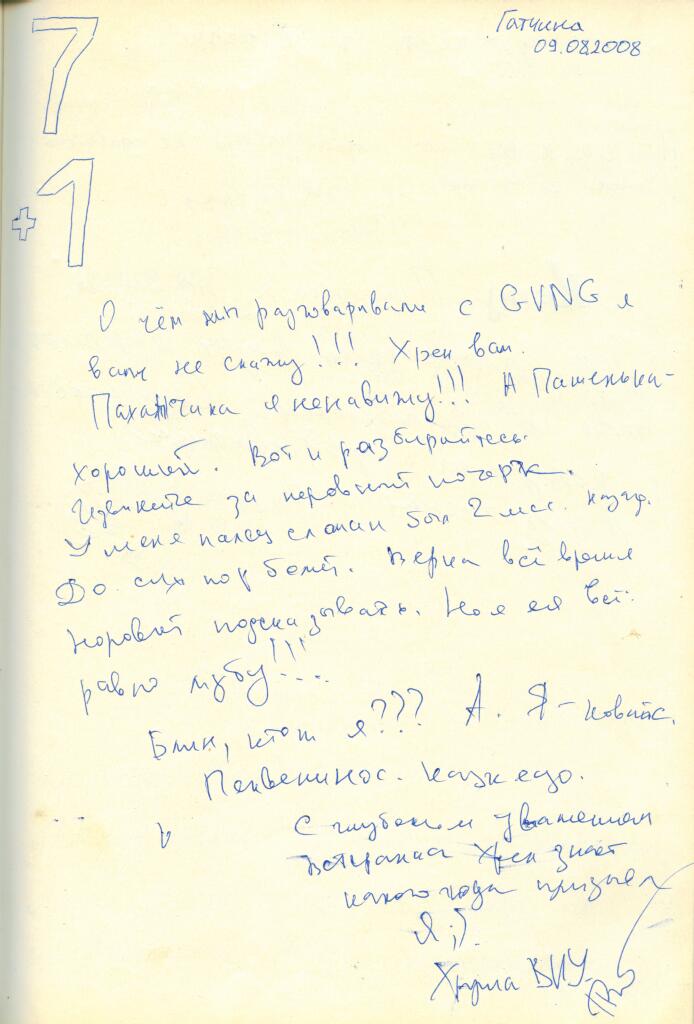 Гатчина
09.08.2008
7
+1
О чём мы разговаривали с GVNG я
вам не скажу!!! Хрен вам.
я ненавижу!!! А Пашенька-
хороший. Вот и разбирайтесь.
Извините за неровный почерк.
У меня палец сломан был 2 мес. назад.
До сих пор болит. Верка всё время
норовит подсказывать. Но я её всё
равно люблю!!!...
Блин, кто ж я??? А. Я -
С глубоким уважением
Хрен знает
какого года призыва
Я ;).
ВИУ